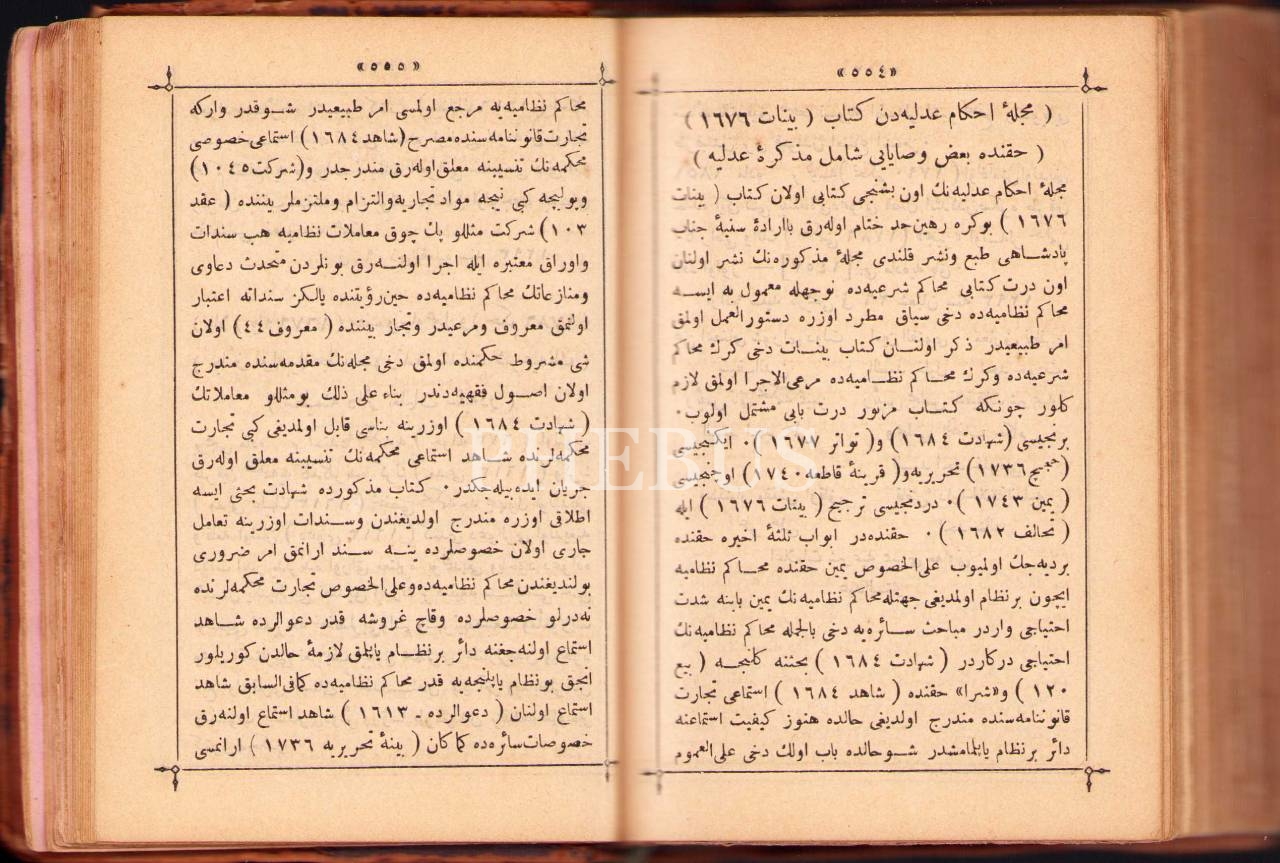 «٥٥٤»
( مجلهٔ احکام عدلیه‌دن کتاب ( بینات ١٦٧٦ )
( حقنده بعض وصایایی شامل مذکرهٔ عدلیه )
مجلهٔ احکام عدلیه‌نك اون بشنجی کتابی اولان کتاب ( بینات
١٦٧٦ ) بوکره رهین‌حد ختام اوله‌رق باارادهٔ سنیهٔ جناب
پادشاهی طبع ونشر قلندی مجلهٔ مذکوره‌نك نشر اولنان
اون درت کتابی محاکم شرعیه‌ده نوجهله معمول به ایسه
محاکم نظامیه‌ده دخی سیاق مطرد اوزره دستورالعمل اولمق
امر طبیعیدر ذکر اولنان کتاب بینات دخی کرك محاکم
شرعیه‌ده وکرك محاکم نظامیه‌ده مرعی‌الاجرا اولمق لازم
کلور چونکه کتاب مزبور درت بابی مشتمل اولوب٠
برنجیسی (شهادت ١٦٨٤) و( تواتر ١٦٧٧ )٠ ایکنجیسی
(حجج ١٧٣٦) تحریریه و( قرینهٔ قاطعه ١٧٤٠) اوچنجیسی
( یمین ١٧٤٣ )٠ دردنجیسی ترجیح ( بینات ١٦٧٦ ) ایله
( تحالف ١٦٨٢ )٠ حقنده‌در ابواب ثلثهٔ اخیره حقنده
بردیه‌جك اولمیوب علی‌الخصوص یمین حقنده محاکم نظامیه
ایچون برنظام اولمدیغی جهتله محاکم نظامیه‌نك یمین بابنه شدت
احتیاجی واردر مباحث سائره‌یه دخی بالجمله محاکم نظامیه‌نك
احتیاجی درکاردر ( شهادت ١٦٨٤ ) بحثنه کلنجه ( بیع
١٢٠ ) و«شرا» حقنده ( شاهد ١٦٨٤ ) استماعی تجارت
قانوننامه‌سنده مندرج اولدیغی حالده هنوز کیفیت استماعنه
دائر برنظام یاپلمامشدر شوحالده باب اولك دخی علی‌العموم
«٥٥٥»
محاکم نظامیه‌یه مرجع اولمسی امر طبیعیدر شوقدر وارکه
تجارت قانوننامه‌سنده مصرح (شاهد ١٦٨٤) استماعی خصوصی
محکمه‌نك تنسیبنه معلق اوله‌رق مندرجدر و(شرکت ١٠٤٥)
وپولیچه کبی نیجه مواد تجاریه والتزام وملتزملر بیننده ( عقد
١٠٣) شرکت مثللو پك چوق معاملات نظامیه هب سندات
واوراق معتبره ایله اجرا اولنه‌رق بونلردن متحدث دعاوی
ومنازعاتك محاکم نظامیه‌ده حین‌رؤیتنده یالکز سنداته اعتبار
اولنمق معروف ومرعیدر وتجار بیننده ( معروف ٤٤) اولان
شی مشروط حکمنده اولمق دخی مجله‌نك مقدمه‌سنده مندرج
اولان اصول فقهیه‌دندر بناء علی ذلك بومثللو معاملاتك
( شهادت ١٦٨٤ ) اوزرینه بناسی قابل اولمدیغی کبی تجارت
محکمه‌لرنده شاهد استماعی محکمه‌نك تنسیبنه معلق اوله‌رق
جریان ایده‌بیله‌جکدر٠ کتاب مذکورده شهادت بحثی ایسه
اطلاقی اوزره مندرج اولدیغندن وسندات اوزرینه تعامل
جاری اولان خصوصلرده ینه سند ارانمق امر ضروری
بولندیغندن محاکم نظامیه‌ده وعلی‌الخصوص تجارت محکمه‌لرنده
نه‌درلو خصوصلرده وقاچ غروشه قدر دعوالرده شاهد
استماع اولنه‌جغنه دائر برنظام یاپلمق لازمهٔ حالدن کوریلور
انجق بونظام یاپلنجه‌یه قدر محاکم نظامیه‌ده کمافی‌السابق شاهد
استماع اولنان ( دعوالرده ـ ١٦١٣ ) شاهد استماع اولنه‌رق
خصوصات سائره‌ده کماکان ( بینهٔ تحریریه ١٧٣٦ ) ارانمسی
PHEBUS